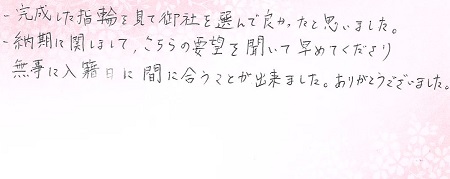 - 完成した指輪を見て御社を選んで良かったと思いました。
- 納期に関しまして、こちらの要望を聞いて早めてくださり
無事に入籍日に間に合うことが出来ました。ありがとうございました。